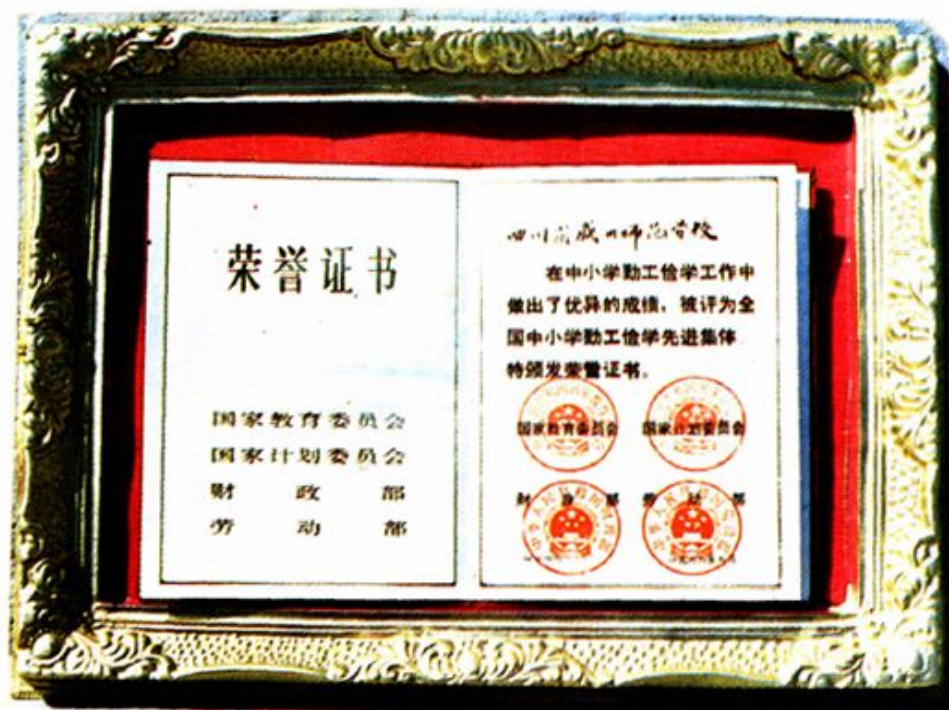 荣誉证书
国家教育委员会
国家计划委员会
财政部
劳动部
四川省威州师范学校
在中小学勤工俭学工作中
做出了优异的成绩，被评为全
国中小学勤工俭学先进集体
特颁发荣誉证书。
国家教育委员会
国家计划委员会
财政部
劳动部